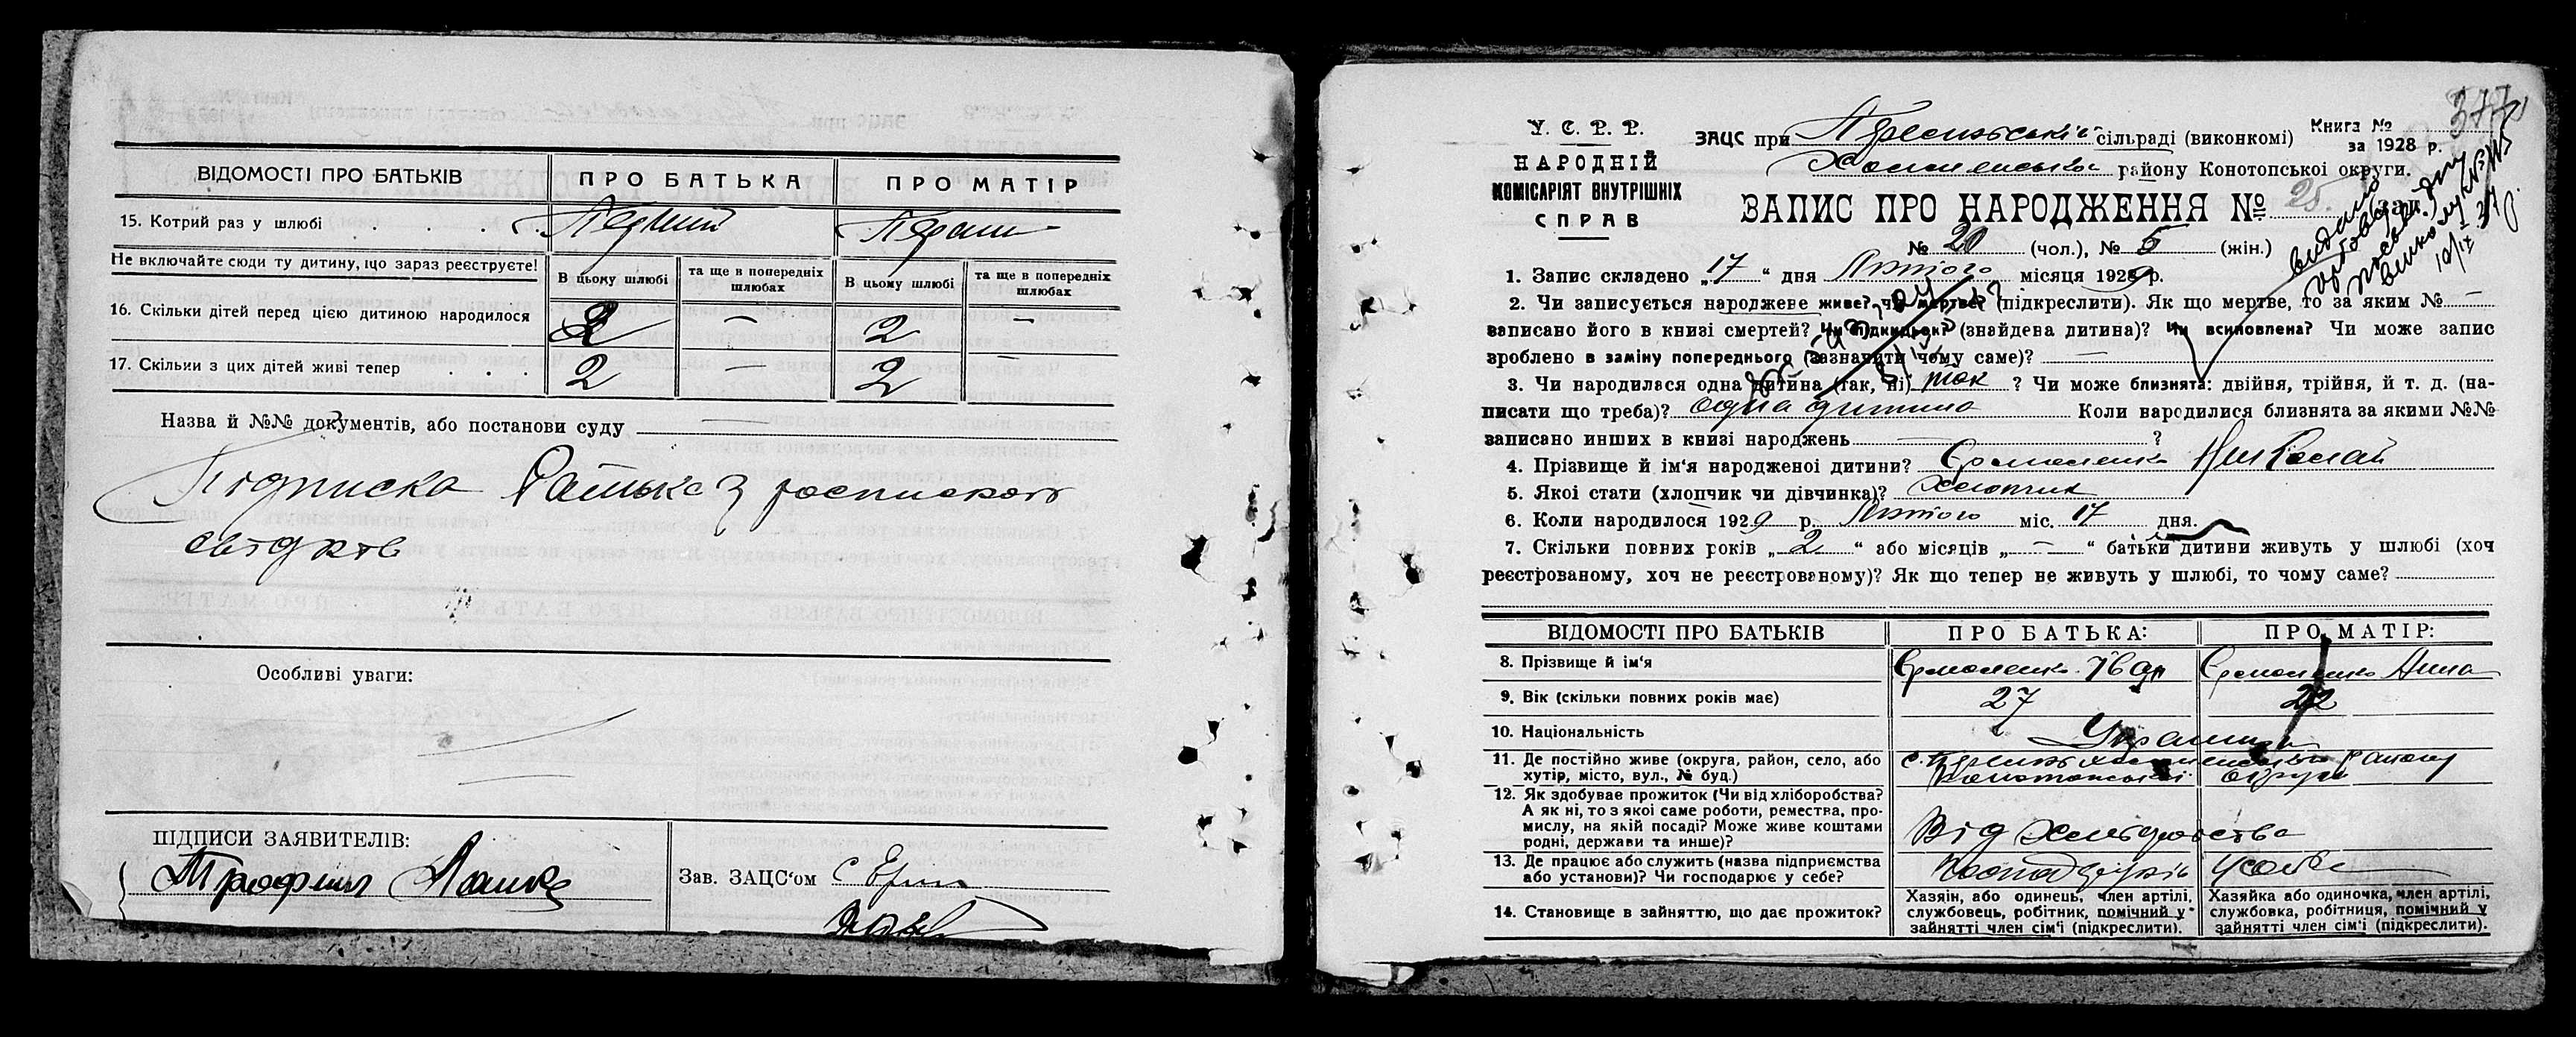 ВІДОМОСТІ ПРО БАТЬКІВ ПРО БАТЬКА ПРО МАТІР
15. Котрий раз у шлюбі
Не включайте сюди ту дитину, що зараз реєструєте!
В цьому шлюбі та ще в попередніх шлюбах В цьому шлюбі та ще в попередніх шлюбах
16. Скільки дітей перед цією дитиною народилося 2 — 2 —
17. Скільки з цих дітей живі тепер 2 — 2 —
Назва й №№ документів, або постанови суду —
Підписка батька з роспискою
свідків
Особливі уваги:
ПІДПИСИ ЗАЯВИТЕЛІВ:
Зав. ЗАЦС'ом
У. С. Р. Р.
НАРОДНІЙ
КОМІСАРІЯТ ВНУТРІШНІХ
СПРАВ
ЗАЦС при сільраді (виконкомі)
району Конотопської округи.
Книга №
за 1928 р.
377
ЗАПИС ПРО НАРОДЖЕННЯ № 25 заг.
№ 20 (чол.), № 5 (жін.)
1. Запис складено „17“ дня Лютого місяця 1929 р.
2. Чи записується народжене живе? чи мертве? (підкреслити). Як що мертве, то за яким № —
записано його в книзі смертей? Чи підкидьок? (знайдена дитина)? Чи всиновлена? Чи може запис
зроблено в заміну попереднього (зазначити чому саме)? —
3. Чи народилася одна дитина (так, ні) так ? Чи може близнята: двійня, трійня, й т. д. (на-
писати що треба)? одна дитина Коли народилися близнята за якими №№
записано инших в книзі народжень — ?
4. Прізвище й ім'я народженої дитини? Єрмоленко Николай
5. Якої стати (хлопчик чи дівчинка)? Хлопчик
6. Коли народилося 1929 р. Лютого міс. 17 дня.
7. Скільки повних років „2“ або місяців „—“ батьки дитини живуть у шлюбі (хоч
реєстрованому, хоч не реєстрованому)? Як що тепер не живуть у шлюбі, то чому саме?
ВІДОМОСТІ ПРО БАТЬКІВ ПРО БАТЬКА: ПРО МАТІР:
8. Прізвище й ім'я Єрмоленко Іван Єрмоленко Анна
9. Вік (скільки повних років має) 27 22
10. Національність
11. Де постійно живе (округа, район, село, або
хутір, місто, вул., № буд.)
12. Як здобуває прожиток (Чи від хліборобства?
А як ні, то з якої саме роботи, ремества, про-
мислу, на якій посаді? Може живе коштами
родні, держави та инше)?
Від Хліборобства
13. Де працює або служить (назва підприємства
або установи)? Чи господарює у себе?
14. Становище в зайняттю, що дає прожиток?
Хазяїн, або одинець, член артілі,
службовець, робітник, помічний у
зайнятті член сім'ї (підкреслити).
Хазяйка або одиночка, член артілі,
службовка, робітниця, помічний у
зайнятті член сім'ї (підкреслити).